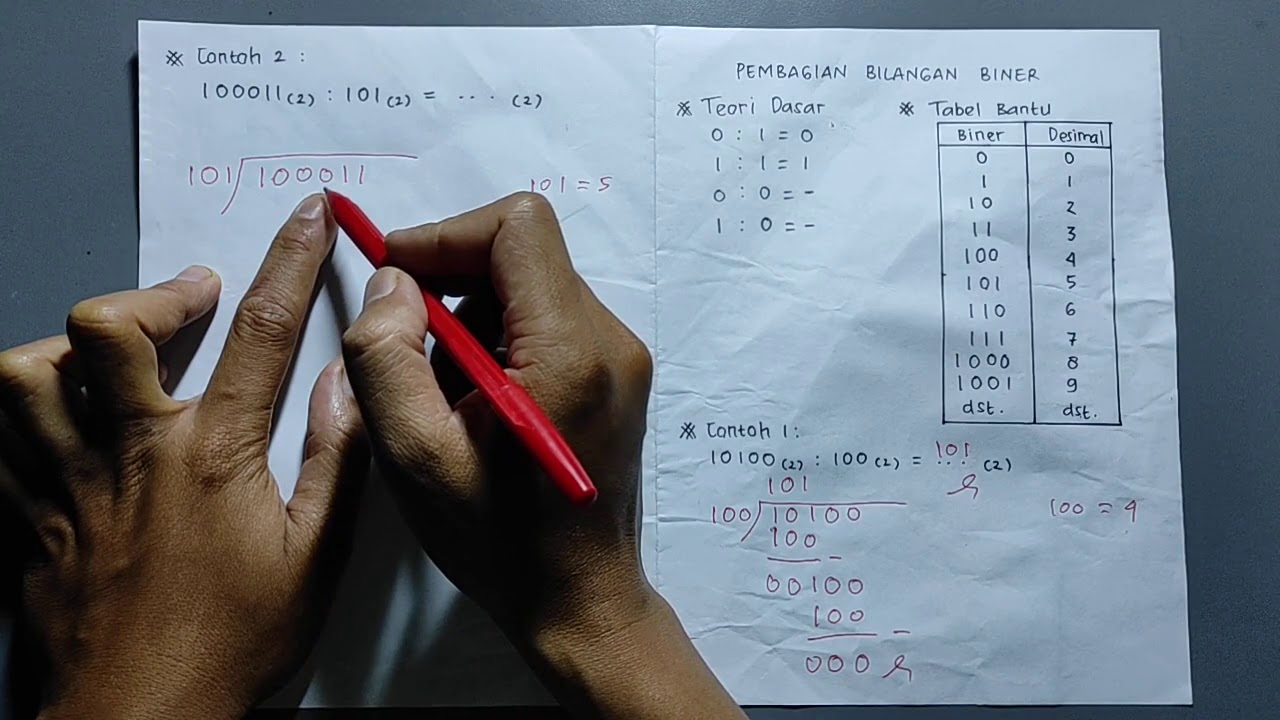 ※ Contoh 2 :
100011(2) : 101(2) = .... (2)
101 100011
101 = 5
PEMBAGIAN BILANGAN BINER
※ Teori Dasar
0 : 1 = 0
1 : 1 = 1
0 : 0 = -
1 : 0 = -
※ Tabel Bantu
Biner Desimal
0 0
1 1
10 2
11 3
100 4
101 5
110 6
111 7
1000 8
1001 9
dst. dst.
※ Contoh 1 :
10100(2) : 100(2) = 101 ... (2)
101
100 10100
100 = 4
100 -
00100
100 -
000